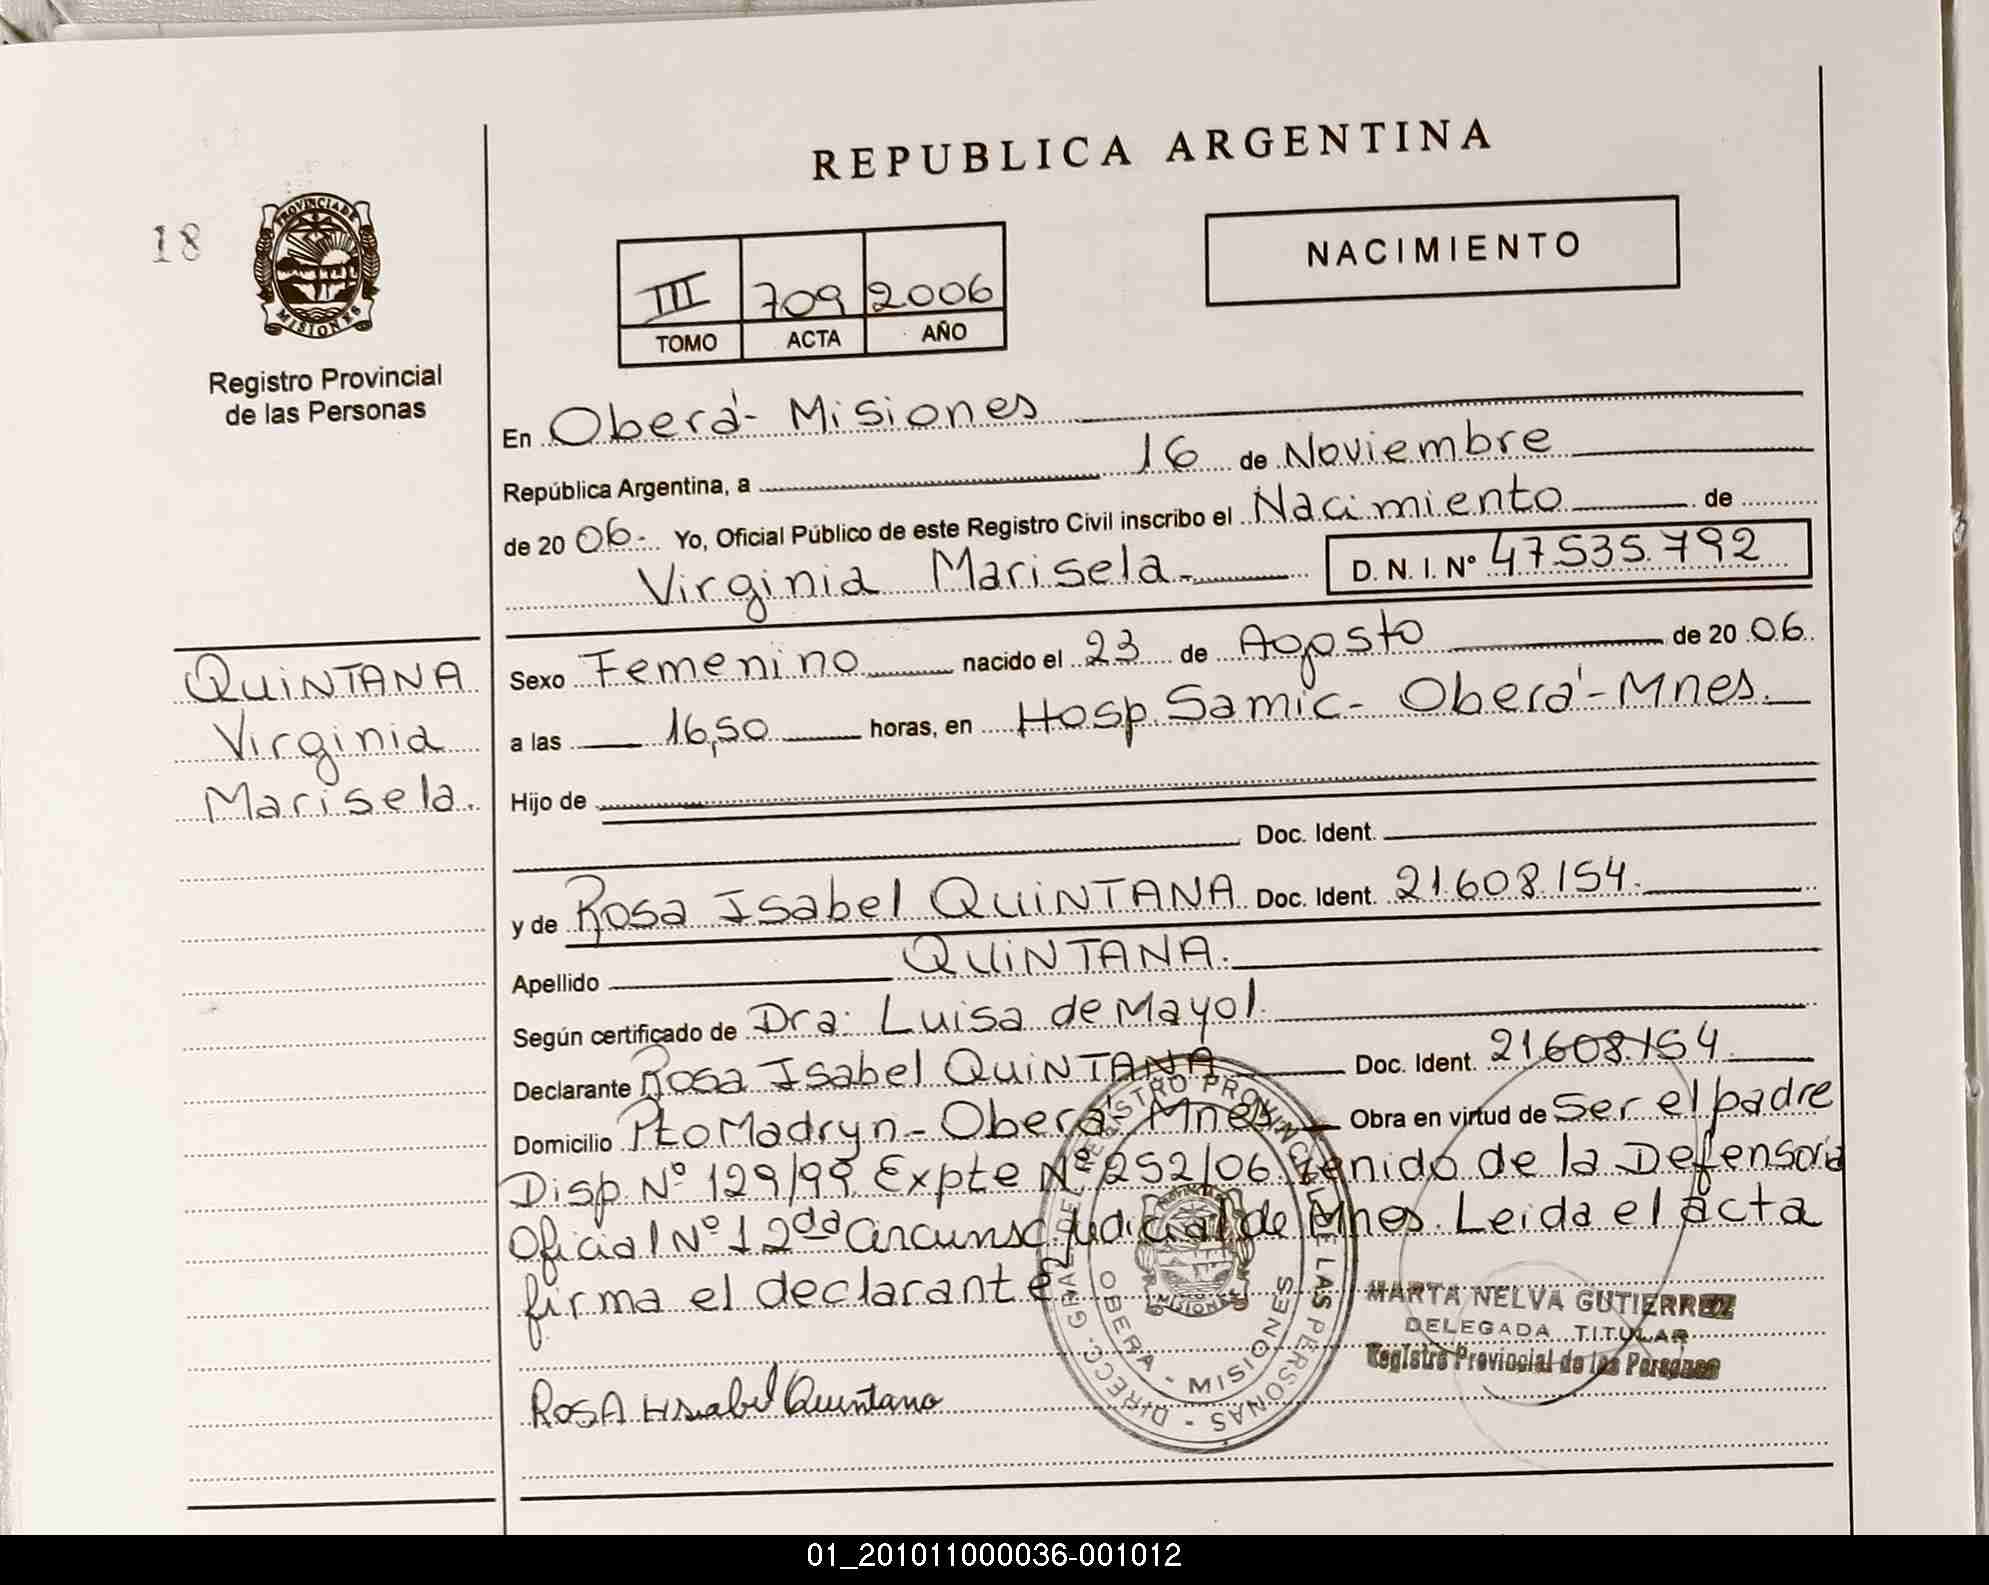 REPUBLICA ARGENTINA
18
PROVINCIA DE
MISIONES
NACIMIENTO
III 709 2006
TOMO ACTA AÑO
Registro Provincial
de las Personas
En Oberá- Misiones
República Argentina, a 16 de Noviembre
de 20 06.- Yo, Oficial Público de este Registro Civil inscribo el Nacimiento de
Virginia Marisela.- D. N. I. Nº 47535.792
QUINTANA
Virginia
Marisela.
Sexo Femenino nacido el 23 de Agosto de 20 06.
a las 16,50 horas, en Hosp. Samic- Oberá-Mnes.
Hijo de
Doc. Ident.
y de Rosa Isabel QUINTANA Doc. Ident. 21.608.154.
Apellido QUINTANA.
Según certificado de Dra. Luisa de Mayol.
Declarante Rosa Isabel QUINTANA Doc. Ident. 21.608.154
Domicilio Pto Madryn- Oberá- Mnes Obra en virtud de Ser el padre
Disp. Nº 129/99. Expte Nº 252/06 venido de la Defensoria
Oficial Nº 1 2da Circunsc. Judicial de Mnes. Leida el acta
firma el declarante
DIRECC. GRAL DEL REGISTRO PROVINCIAL DE LAS PERSONAS
OBERA - MISIONES
MISIONES
MARTA NELVA GUTIERREZ
DELEGADA TITULAR
Registro Provincial de las Personas
ROSA Isabel Quintana
01_201011000036-001012